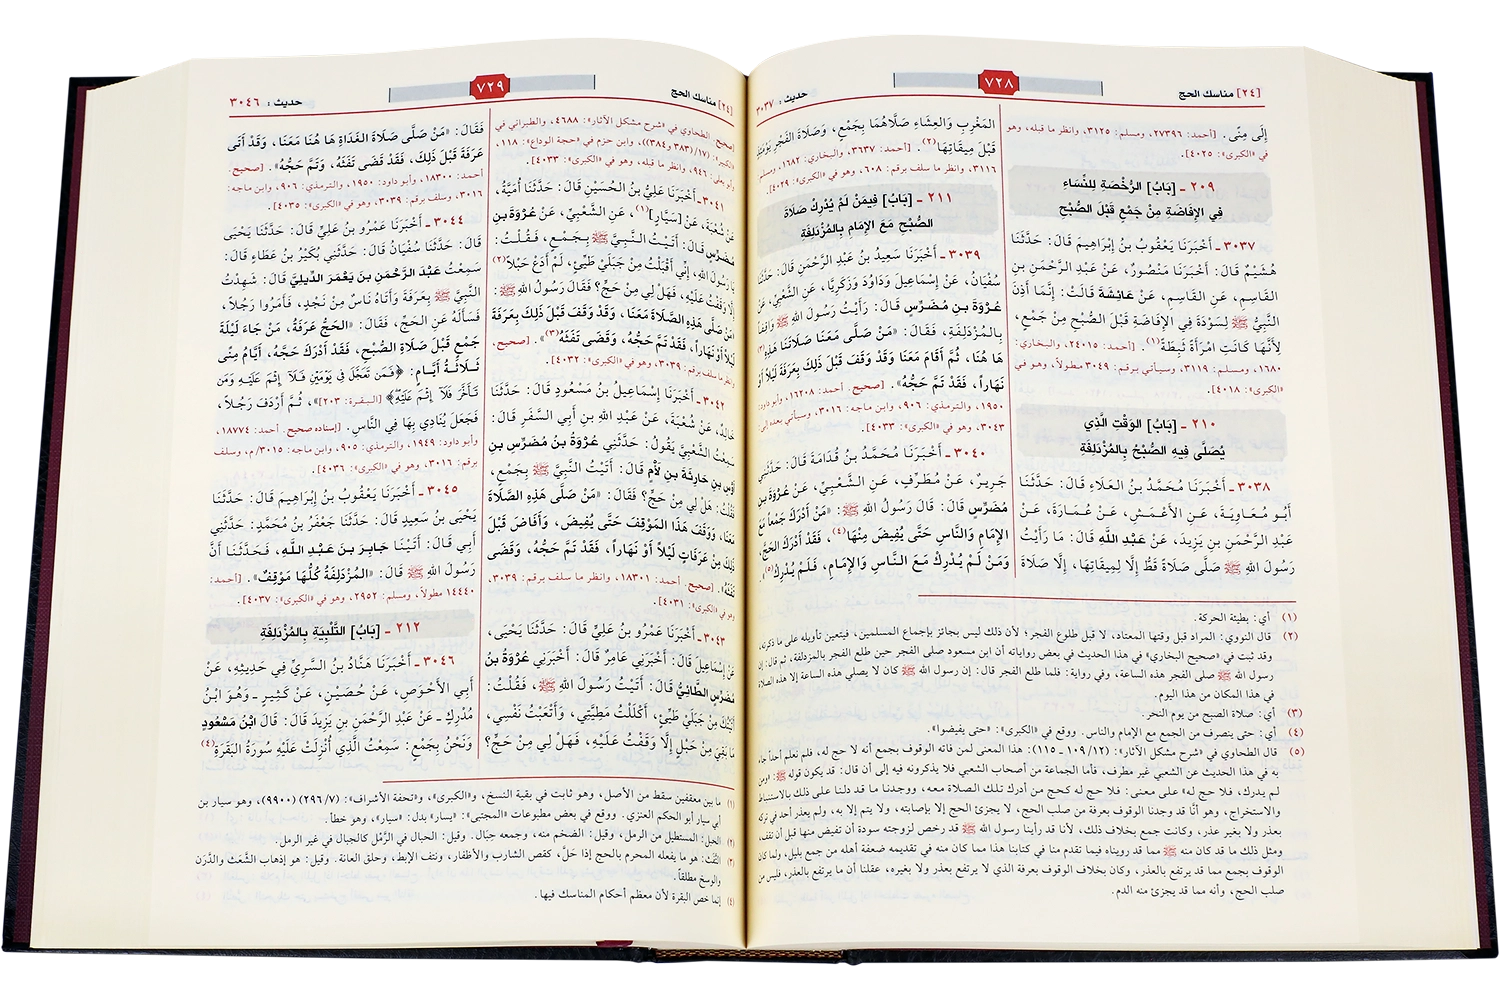 [٢٤] مناسك الحج
٧٢٨
حديث : ٣٠٣٧
إِلَى مِنًى. [أحمد: ٢٧٣٩٦، ومسلم: ٣١٢٥، وانظر ما قبله، وهو
في «الكبرى»: ٤٠٢٥].
٢٠٩ - [بَابُ] الرُّخْصَةِ لِلنِّسَاءِ
فِي الإِفَاضَةِ مِنْ جَمْعٍ قَبْلَ الصُّبْحِ
٣٠٣٧ - أَخْبَرَنَا يَعْقُوبُ بنُ إِبْرَاهِيمَ قَالَ: حَدَّثَنَا
هُشَيْمٌ قَالَ: أَخْبَرَنَا مَنْصُورٌ، عَنْ عَبْدِ الرَّحْمَنِ بنِ
القَاسِمِ، عَنِ القَاسِمِ، عَنْ عَائِشَةَ قَالَتْ: إِنَّمَا أَذِنَ
النَّبِيُّ ﷺ لِسَوْدَةَ فِي الإِفَاضَةِ قَبْلَ الصُّبْحِ مِنْ جَمْعٍ،
لِأَنَّهَا كَانَتِ امْرَأَةً ثَبِطَةً(١). [أحمد: ٢٤٠١٥، والبخاري:
١٦٨٠، ومسلم: ٣١١٩، وسيأتي برقم: ٣٠٤٩ مطولاً، وهو في
«الكبرى»: ٤٠١٨].
٢١٠ - [بَابُ] الوَقْتِ الَّذِي
يُصَلَّى فِيهِ الصُّبْحُ بِالمُزْدَلِفَةِ
٣٠٣٨ - أَخْبَرَنَا مُحَمَّدُ بنُ العَلَاءِ قَالَ: حَدَّثَنَا
أَبُو مُعَاوِيَةَ، عَنِ الأَعْمَشِ، عَنْ عُمَارَةَ، عَنْ
عَبْدِ الرَّحْمَنِ بنِ يَزِيدَ، عَنْ عَبْدِ اللَّهِ قَالَ: مَا رَأَيْتُ
رَسُولَ اللهِ ﷺ صَلَّى صَلَاةً قَطُّ إِلَّا لِمِيقَاتِهَا، إِلَّا صَلَاةَ
المَغْرِبِ وَالعِشَاءِ صَلَّاهُمَا بِجَمْعٍ، وَصَلَاةَ الفَجْرِ يَوْمَئِذٍ
قَبْلَ مِيقَاتِهَا(٢). [أحمد: ٣٦٣٧، والبخاري: ١٦٨٢، ومسلم:
٣١١٦، وانظر ما سلف برقم: ٦٠٨، وهو في «الكبرى»: ٤٠٢٩].
٢١١ - [بَابُ] فِيمَنْ لَمْ يُدْرِكْ صَلَاةَ
الصُّبْحِ مَعَ الإِمَامِ بِالمُزْدَلِفَةِ
٣٠٣٩ - أَخْبَرَنَا سَعِيدُ بنُ عَبْدِ الرَّحْمَنِ قَالَ: حَدَّثَنَا
سُفْيَانُ، عَنْ إِسْمَاعِيلَ وَدَاوُدَ وَزَكَرِيَّا، عَنِ الشَّعْبِيِّ، عَنْ
عُرْوَةَ بنِ مُضَرِّسٍ قَالَ: رَأَيْتُ رَسُولَ اللهِ ﷺ وَاقِفاً
بِالمُزْدَلِفَةِ، فَقَالَ: «مَنْ صَلَّى مَعَنَا صَلَاتَنَا هَذِهِ(٣)
هَا هُنَا، ثُمَّ أَقَامَ مَعَنَا وَقَدْ وَقَفَ قَبْلَ ذَلِكَ بِعَرَفَةَ لَيْلاً أَوْ
نَهَاراً، فَقَدْ تَمَّ حَجُّهُ». [صحيح. أحمد: ١٦٢٠٨، وأبو داود:
١٩٥٠، والترمذي: ٩٠٦، وابن ماجه: ٣٠١٦، وسيأتي بعده إلى:
٣٠٤٣، وهو في «الكبرى»: ٤٠٣٣].
٣٠٤٠ - أَخْبَرَنَا مُحَمَّدُ بنُ قُدَامَةَ قَالَ: حَدَّثَنِي
جَرِيرٌ، عَنْ مُطَرِّفٍ، عَنِ الشَّعْبِيِّ، عَنْ عُرْوَةَ بنِ
مُضَرِّسٍ قَالَ: قَالَ رَسُولُ اللهِ ﷺ: «مَنْ أَدْرَكَ جَمْعاً مَعَ
الإِمَامِ وَالنَّاسِ حَتَّى يُفِيضَ مِنْهَا(٤)، فَقَدْ أَدْرَكَ الحَجَّ،
وَمَنْ لَمْ يُدْرِكْ مَعَ النَّاسِ وَالإِمَامِ، فَلَمْ يُدْرِكْ(٥)».
(١) أي: بطيئة الحركة.
(٢) قال النووي: المراد قبل وقتها المعتاد، لا قبل طلوع الفجر؛ لأن ذلك ليس بجائز بإجماع المسلمين، فيتعين تأويله على ما ذكرته،
وقد ثبت في «صحيح البخاري» في هذا الحديث في بعض رواياته أن ابن مسعود صلى الفجر حين طلع الفجر بالمزدلفة، ثم قال: إن
رسول الله ﷺ صلى الفجر هذه الساعة، وفي رواية: فلما طلع الفجر قال: إن رسول الله ﷺ كان لا يصلي هذه الساعة إلا هذه الصلاة
في هذا المكان من هذا اليوم.
(٣) أي: صلاة الصبح من يوم النحر.
(٤) أي: حتى ينصرف من الجمع مع الإمام والناس. ووقع في «الكبرى»: «حتى يفيضوا».
(٥) قال الطحاوي في «شرح مشكل الآثار»: (١٢/ ١٠٩ - ١١٥): هذا المعنى لمن فاته الوقوف بجمع أنه لا حج له، فلم نعلم أحداً جاء
به في هذا الحديث عن الشعبي غير مطرف، فأما الجماعة من أصحاب الشعبي فلا يذكرونه فيه إلى أن قال: قد يكون قوله ﷺ: «ومن
لم يدرك، فلا حج له» على معنى: فلا حج له كحج من أدرك تلك الصلاة معه، ووجدنا ما قد دلنا على ذلك بالاستنباط
والاستخراج، وهو أنَّا قد وجدنا الوقوف بعرفة من صلب الحج، لا يجزئ الحج إلا بإصابته، ولا يتم إلا به، ولم يعذر أحد في تركه
بعذر ولا بغير عذر، وكانت جمع بخلاف ذلك، لأنا قد رأينا رسول الله ﷺ قد رخص لزوجته سودة أن تفيض منها قبل أن تقف،
ومثل ذلك ما قد كان منه ﷺ مما قد رويناه فيما تقدم منا في كتابنا هذا مما كان منه في تقديمه ضعفة أهله من جمع بليل، ولما كان
الوقوف بجمع مما قد يرتفع بالعذر، وكان بخلاف الوقوف بعرفة الذي لا يرتفع بعذر ولا بغيره، عقلنا أن ما يرتفع بالعذر، فليس من
صلب الحج، وأنه مما قد يجزئ منه الدم.
[٢٤] مناسك الحج
٧٢٩
حديث : ٣٠٤٦
[صحيح. الطحاوي في «شرح مشكل الآثار»: ٤٦٨٨، والطبراني في
«الكبير»: (١٧/ (٣٨٣ و٣٨٤))، وابن حزم في «حجة الوداع»: ١١٨،
وأبو يعلى: ٩٤٦، وانظر ما قبله، وهو في «الكبرى»: ٤٠٣٣].
٣٠٤١ - أَخْبَرَنَا عَلِيُّ بنُ الحُسَيْنِ قَالَ: حَدَّثَنَا أُمَيَّةُ،
عَنْ شُعْبَةَ، عَنْ [سَيَّارٍ](١)، عَنِ الشَّعْبِيِّ، عَنْ عُرْوَةَ بنِ
مُضَرِّسٍ قَالَ: أَتَيْتُ النَّبِيَّ ﷺ بِجَمْعٍ، فَقُلْتُ:
يَا رَسُولَ اللهِ، إِنِّي أَقْبَلْتُ مِنْ جَبَلَيْ طَيِّئٍ، لَمْ أَدَعْ حَبْلاً(٢)
إِلَّا وَقَفْتُ عَلَيْهِ، فَهَلْ لِي مِنْ حَجٍّ؟ فَقَالَ رَسُولُ اللهِ ﷺ:
«مَنْ صَلَّى هَذِهِ الصَّلَاةَ مَعَنَا، وَقَدْ وَقَفَ قَبْلَ ذَلِكَ بِعَرَفَةَ
لَيْلاً أَوْ نَهَاراً، فَقَدْ تَمَّ حَجُّهُ، وَقَضَى تَفَثَهُ(٣)». [صحيح،
وانظر ما سلف برقم: ٣٠٣٩، وهو في «الكبرى»: ٤٠٣٢].
٣٠٤٢ - أَخْبَرَنَا إِسْمَاعِيلُ بنُ مَسْعُودٍ قَالَ: حَدَّثَنَا
خَالِدٌ، عَنْ شُعْبَةَ، عَنْ عَبْدِ اللهِ بنِ أَبِي السَّفَرِ قَالَ:
سَمِعْتُ الشَّعْبِيَّ يَقُولُ: حَدَّثَنِي عُرْوَةُ بنُ مُضَرِّسِ بنِ
أَوْسِ بنِ حَارِثَةَ بنِ لَأْمٍ قَالَ: أَتَيْتُ النَّبِيَّ ﷺ بِجَمْعٍ،
فَقُلْتُ: هَلْ لِي مِنْ حَجٍّ؟ فَقَالَ: «مَنْ صَلَّى هَذِهِ الصَّلَاةَ
مَعَنَا، وَوَقَفَ هَذَا المَوْقِفَ حَتَّى يُفِيضَ، وَأَفَاضَ قَبْلَ
ذَلِكَ مِنْ عَرَفَاتٍ لَيْلاً أَوْ نَهَاراً، فَقَدْ تَمَّ حَجُّهُ، وَقَضَى
تَفَثَهُ». [صحيح. أحمد: ١٨٣٠١، وانظر ما سلف برقم: ٣٠٣٩،
وهو في «الكبرى»: ٤٠٣١].
٣٠٤٣ - أَخْبَرَنَا عَمْرُو بنُ عَلِيٍّ قَالَ: حَدَّثَنَا يَحْيَى،
عَنْ إِسْمَاعِيلَ قَالَ: أَخْبَرَنِي عَامِرٌ قَالَ: أَخْبَرَنِي عُرْوَةُ بنُ
مُضَرِّسٍ الطَّائِيُّ قَالَ: أَتَيْتُ رَسُولَ اللهِ ﷺ، فَقُلْتُ:
أَتَيْتُكَ مِنْ جَبَلَيْ طَيِّئٍ، أَكْلَلْتُ مَطِيَّتِي، وَأَتْعَبْتُ نَفْسِي،
مَا بَقِيَ مِنْ حَبْلٍ إِلَّا وَقَفْتُ عَلَيْهِ، فَهَلْ لِي مِنْ حَجٍّ؟
فَقَالَ: «مَنْ صَلَّى صَلَاةَ الغَدَاةِ هَا هُنَا مَعَنَا، وَقَدْ أَتَى
عَرَفَةَ قَبْلَ ذَلِكَ، فَقَدْ قَضَى تَفَثَهُ، وَتَمَّ حَجُّهُ». [صحيح.
أحمد: ١٨٣٠٠، وأبو داود: ١٩٥٠، والترمذي: ٩٠٦، وابن ماجه:
٣٠١٦، وسلف برقم: ٣٠٣٩، وهو في «الكبرى»: ٤٠٣٥].
٣٠٤٤ - أَخْبَرَنَا عَمْرُو بنُ عَلِيٍّ قَالَ: حَدَّثَنَا يَحْيَى
قَالَ: حَدَّثَنَا سُفْيَانُ قَالَ: حَدَّثَنِي بُكَيْرُ بنُ عَطَاءٍ قَالَ:
سَمِعْتُ عَبْدَ الرَّحْمَنِ بنَ يَعْمَرَ الدِّيلِيَّ قَالَ: شَهِدْتُ
النَّبِيَّ ﷺ بِعَرَفَةَ وَأَتَاهُ نَاسٌ مِنْ نَجْدٍ، فَأَمَرُوا رَجُلاً،
فَسَأَلَهُ عَنِ الحَجِّ، فَقَالَ: «الحَجُّ عَرَفَةُ، مَنْ جَاءَ لَيْلَةَ
جَمْعٍ قَبْلَ صَلَاةِ الصُّبْحِ، فَقَدْ أَدْرَكَ حَجَّهُ، أَيَّامُ مِنًى
ثَلَاثَةُ أَيَّامٍ: ﴿فَمَن تَعَجَّلَ فِى يَوْمَيْنِ فَلَآ إِثْمَ عَلَيْهِ وَمَن
تَأَخَّرَ فَلَآ إِثْمَ عَلَيْهِ﴾ [البقرة: ٢٠٣]»، ثُمَّ أَرْدَفَ رَجُلاً،
فَجَعَلَ يُنَادِي بِهَا فِي النَّاسِ. [إسناده صحيح. أحمد: ١٨٧٧٤،
وأبو داود: ١٩٤٩، والترمذي: ٩٠٥، وابن ماجه: ٣٠١٥/م، وسلف
برقم: ٣٠١٦، وهو في «الكبرى»: ٤٠٣٦].
٣٠٤٥ - أَخْبَرَنَا يَعْقُوبُ بنُ إِبْرَاهِيمَ قَالَ: حَدَّثَنَا
يَحْيَى بنُ سَعِيدٍ قَالَ: حَدَّثَنَا جَعْفَرُ بنُ مُحَمَّدٍ: حَدَّثَنِي
أَبِي قَالَ: أَتَيْنَا جَابِرَ بنَ عَبْدِ اللهِ، فَحَدَّثَنَا أَنَّ
رَسُولَ اللهِ ﷺ قَالَ: «المُزْدَلِفَةُ كُلُّهَا مَوْقِفٌ». [أحمد:
١٤٤٤٠ مطولاً، ومسلم: ٢٩٥٢، وهو في «الكبرى»: ٤٠٣٧].
٢١٢ - [بَابُ] التَّلْبِيَةِ بِالمُزْدَلِفَةِ
٣٠٤٦ - أَخْبَرَنَا هَنَّادُ بنُ السَّرِيِّ فِي حَدِيثِهِ، عَنْ
أَبِي الأَحْوَصِ، عَنْ حُصَيْنٍ، عَنْ كَثِيرٍ - وَهُوَ ابْنُ
مُدْرِكٍ - عَنْ عَبْدِ الرَّحْمَنِ بنِ يَزِيدَ قَالَ: قَالَ ابْنُ مَسْعُودٍ
وَنَحْنُ بِجَمْعٍ: سَمِعْتُ الَّذِي أُنْزِلَتْ عَلَيْهِ سُورَةُ البَقَرَةِ(٤)
(١) ما بين معقفين سقط من الأصل، وهو ثابت في بقية النسخ، و«الكبرى»، و«تحفة الأشراف»: (٧/ ٢٩٦) (٩٩٠٠)، وهو سيار بن
أبي سيار أبو الحكم العنزي. ووقع في بعض مطبوعات «المجتبى»: «يسار» بدل: «سيار»، وهو خطأ.
(٢) الحبل: المستطيل من الرمل، وقيل: الضخم منه، وجمعه حِبَال. وقيل: الحبال في الرَّمْل كالجبال في غير الرمل.
(٣) التَّفَث: هو ما يفعله المحرم بالحج إذا حَلَّ، كقص الشارب والأظفار، ونتف الإبط، وحلق العانة. وقيل: هو إذهاب الشَّعَث والدَّرَن
والوسخ مطلقاً.
(٤) إنما خص البقرة لأن معظم أحكام المناسك فيها.